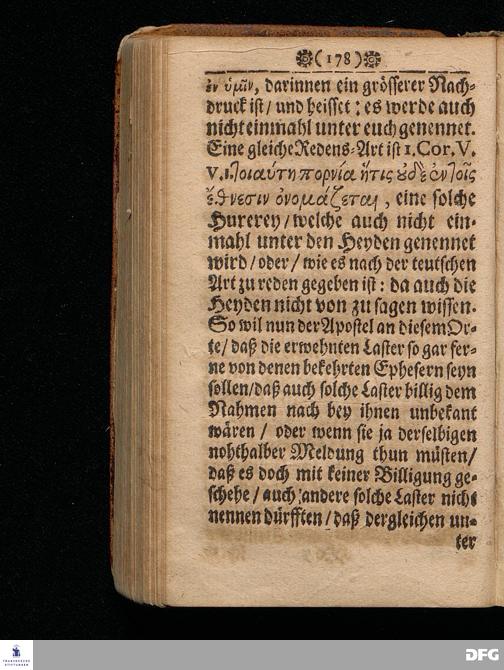 ❁( 178 )❁
ἐν ὑμῖν, darinnen ein grösserer Nach-
druck ist / und heisset : es werde auch
nicht einmahl unter euch genennet.
Eine gleiche Redens-Art ist 1. Cor. V.
v. 1. τοιαύτη πορνία ἥτις οὐδὲ ἐν τοῖς
ἔθνεσιν ὀνομάζεται, eine solche
Hurerey / welche auch nicht ein-
mahl unter den Heyden genennet
wird / oder / wie es nach der teutschen
Art zu reden gegeben ist : da auch die
Heyden nicht von zu sagen wissen.
So wil nun der Apostel an diesem Or-
te / daß die erwehnten Laster so gar fer-
ne von denen bekehrten Ephesern seyn
sollen / daß auch solche Laster billig dem
Nahmen nach bey ihnen unbekant
wären / oder wenn sie ja derselbigen
nohthalber Meldung thun müsten /
daß es doch mit keiner Billigung ge-
schehe / auch andere solche Laster nicht
nennen dürfften / daß dergleichen un-
ter
FRANCKESCHE
STIFTUNGEN
DFG